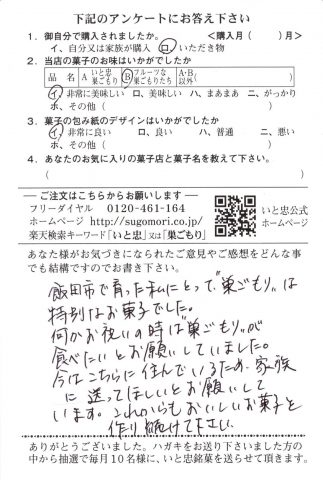 下記のアンケートにお答え下さい
1. 御自分で購入されましたか。 ＜購入月（　　）月＞
イ、自分又は家族が購入 ロ、いただき物
2. 当店の菓子のお味はいかがでしたか
品　名 A いと忠 巣ごもり B フルーツな 巣ごもりたち A・B 以外（　　）
イ、非常に美味しい ロ、美味しい ハ、まあまあ ニ、がっかり
ホ、その他（　　）
3. 菓子の包み紙のデザインはいかがでしたか
イ、非常に良い ロ、良い ハ、普通 ニ、悪い
ホ、その他（　　）
4. あなたのお気に入りの菓子店と菓子名を教えて下さい。
（　　）
ご注文はこちらからお願いします
フリーダイヤル 0120-461-164
ホームページ http://sugomori.co.jp/
楽天検索キーワード「いと忠」又は「巣ごもり」
いと忠公式
ホームページ
あなた様がお気づきになられたご意見やご感想をどんな事
でも結構ですのでお書き下さい。
飯田市で育った私にとって"巣ごもり"は
特別なお菓子でした。
何かお祝いの時は"巣ごもり"が
食べたいとお願いしていました。
今はこちらに住んでいるため、家族
に送ってほしいとお願いして
います。これからもおいしいお菓子を
作り続けて下さい。
ありがとうございました。ハガキをお送り下さいました方の
中から抽選で毎月10名様に、いと忠銘菓を送らせて頂きます。